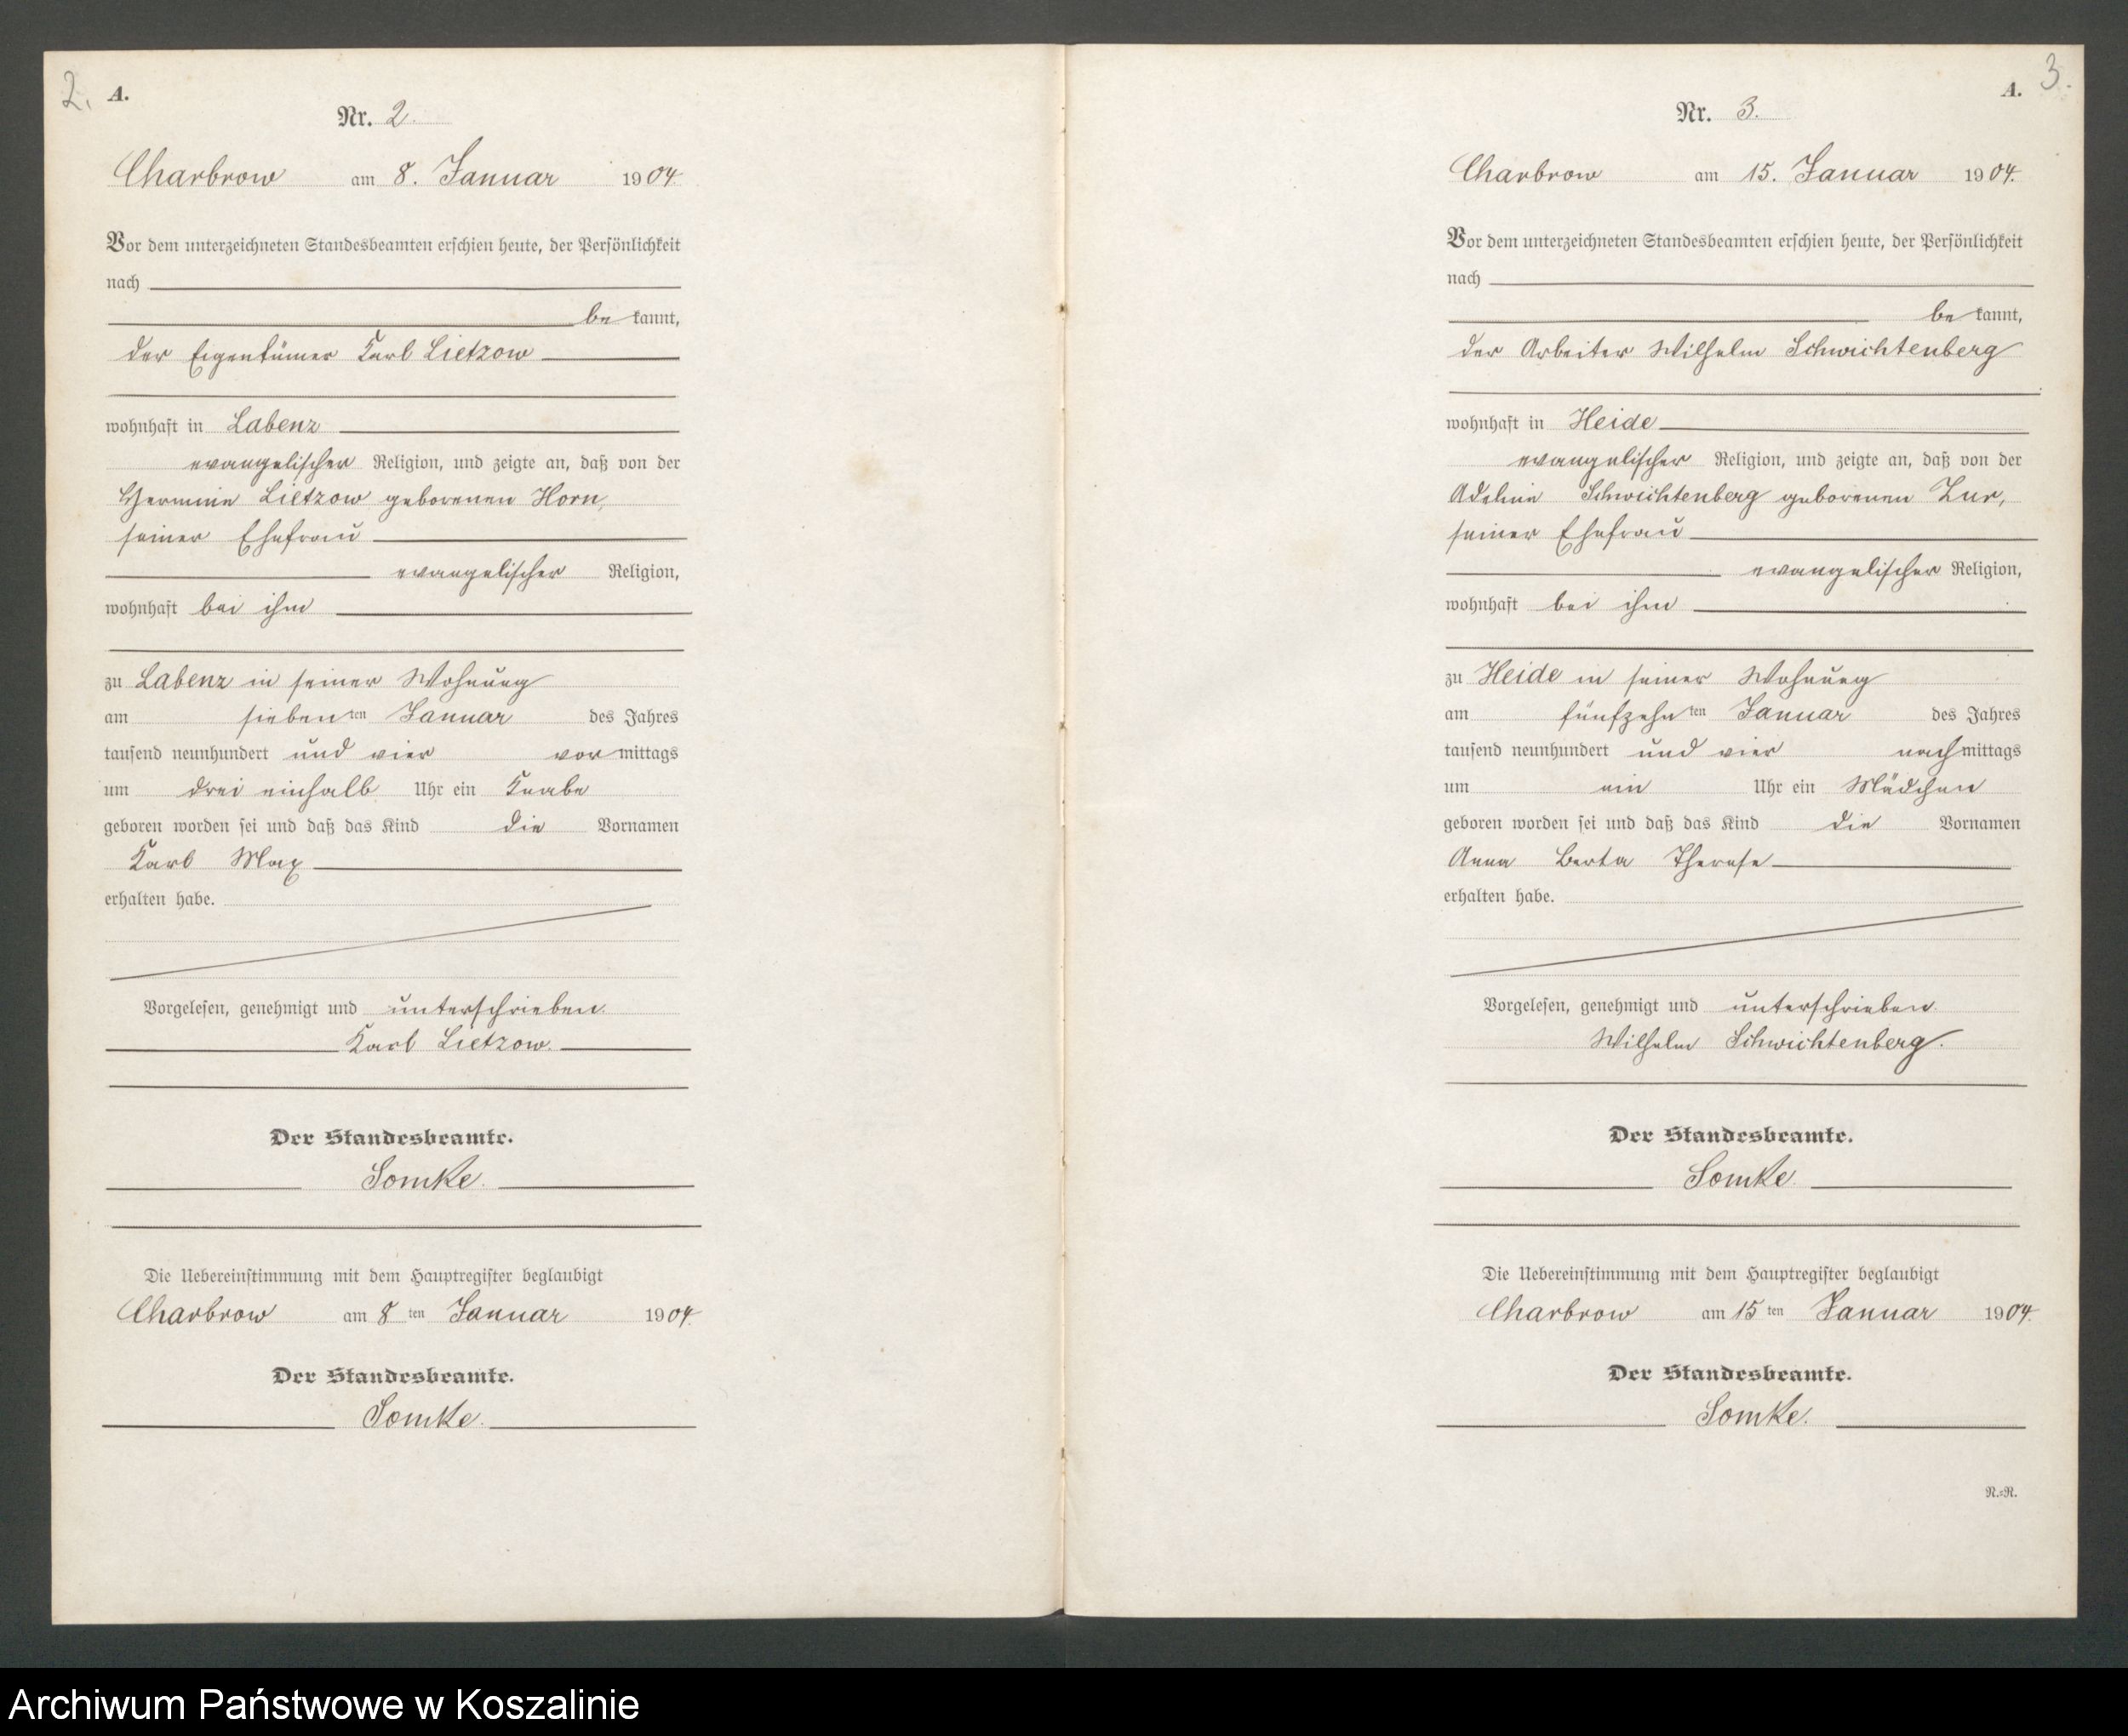 2.
A.
Nr. 2.
Charbrow am 8. Januar 1904.
Vor dem unterzeichneten Standesbeamten erschien heute, der Persönlichkeit
nach
be kannt,
der Eigentümer Karl Lietzow
wohnhaft in Labenz
evangelischer Religion, und zeigte an, daß von der
Hermine Lietzow geborenen Horn,
seiner Ehefrau
evangelischer Religion,
wohnhaft bei ihm
zu Labenz in seiner Wohnung
am siebenten Januar des Jahres
tausend neunhundert und vier vormittags
um drei einhalb Uhr ein Knabe
geboren worden sei und daß das Kind die Vornamen
Karl Max
erhalten habe.
Vorgelesen, genehmigt und unterschrieben.
Karl Lietzow.
Der Standesbeamte.
Somke.
Die Uebereinstimmung mit dem Hauptregister beglaubigt
Charbrow am 8ten Januar 1904.
Der Standesbeamte.
Somke.
A.
3.
Nr. 3.
Charbrow am 15. Januar 1904.
Vor dem unterzeichneten Standesbeamten erschien heute, der Persönlichkeit
nach
be kannt,
der Arbeiter Wilhelm Schwichtenberg
wohnhaft in Heide
evangelischer Religion, und zeigte an, daß von der
Adeline Schwichtenberg geborenen Zur,
seiner Ehefrau
evangelischer Religion,
wohnhaft bei ihm
zu Heide in seiner Wohnung
am fünfzehnten Januar des Jahres
tausend neunhundert und vier nachmittags
um ein Uhr ein Mädchen
geboren worden sei und daß das Kind die Vornamen
Anna Berta Therese
erhalten habe.
Vorgelesen, genehmigt und unterschrieben.
Wilhelm Schwichtenberg.
Der Standesbeamte.
Somke.
Die Uebereinstimmung mit dem Hauptregister beglaubigt
Charbrow am 15ten Januar 1904.
Der Standesbeamte.
Somke.
R.=R.
Archiwum Państwowe w Koszalinie